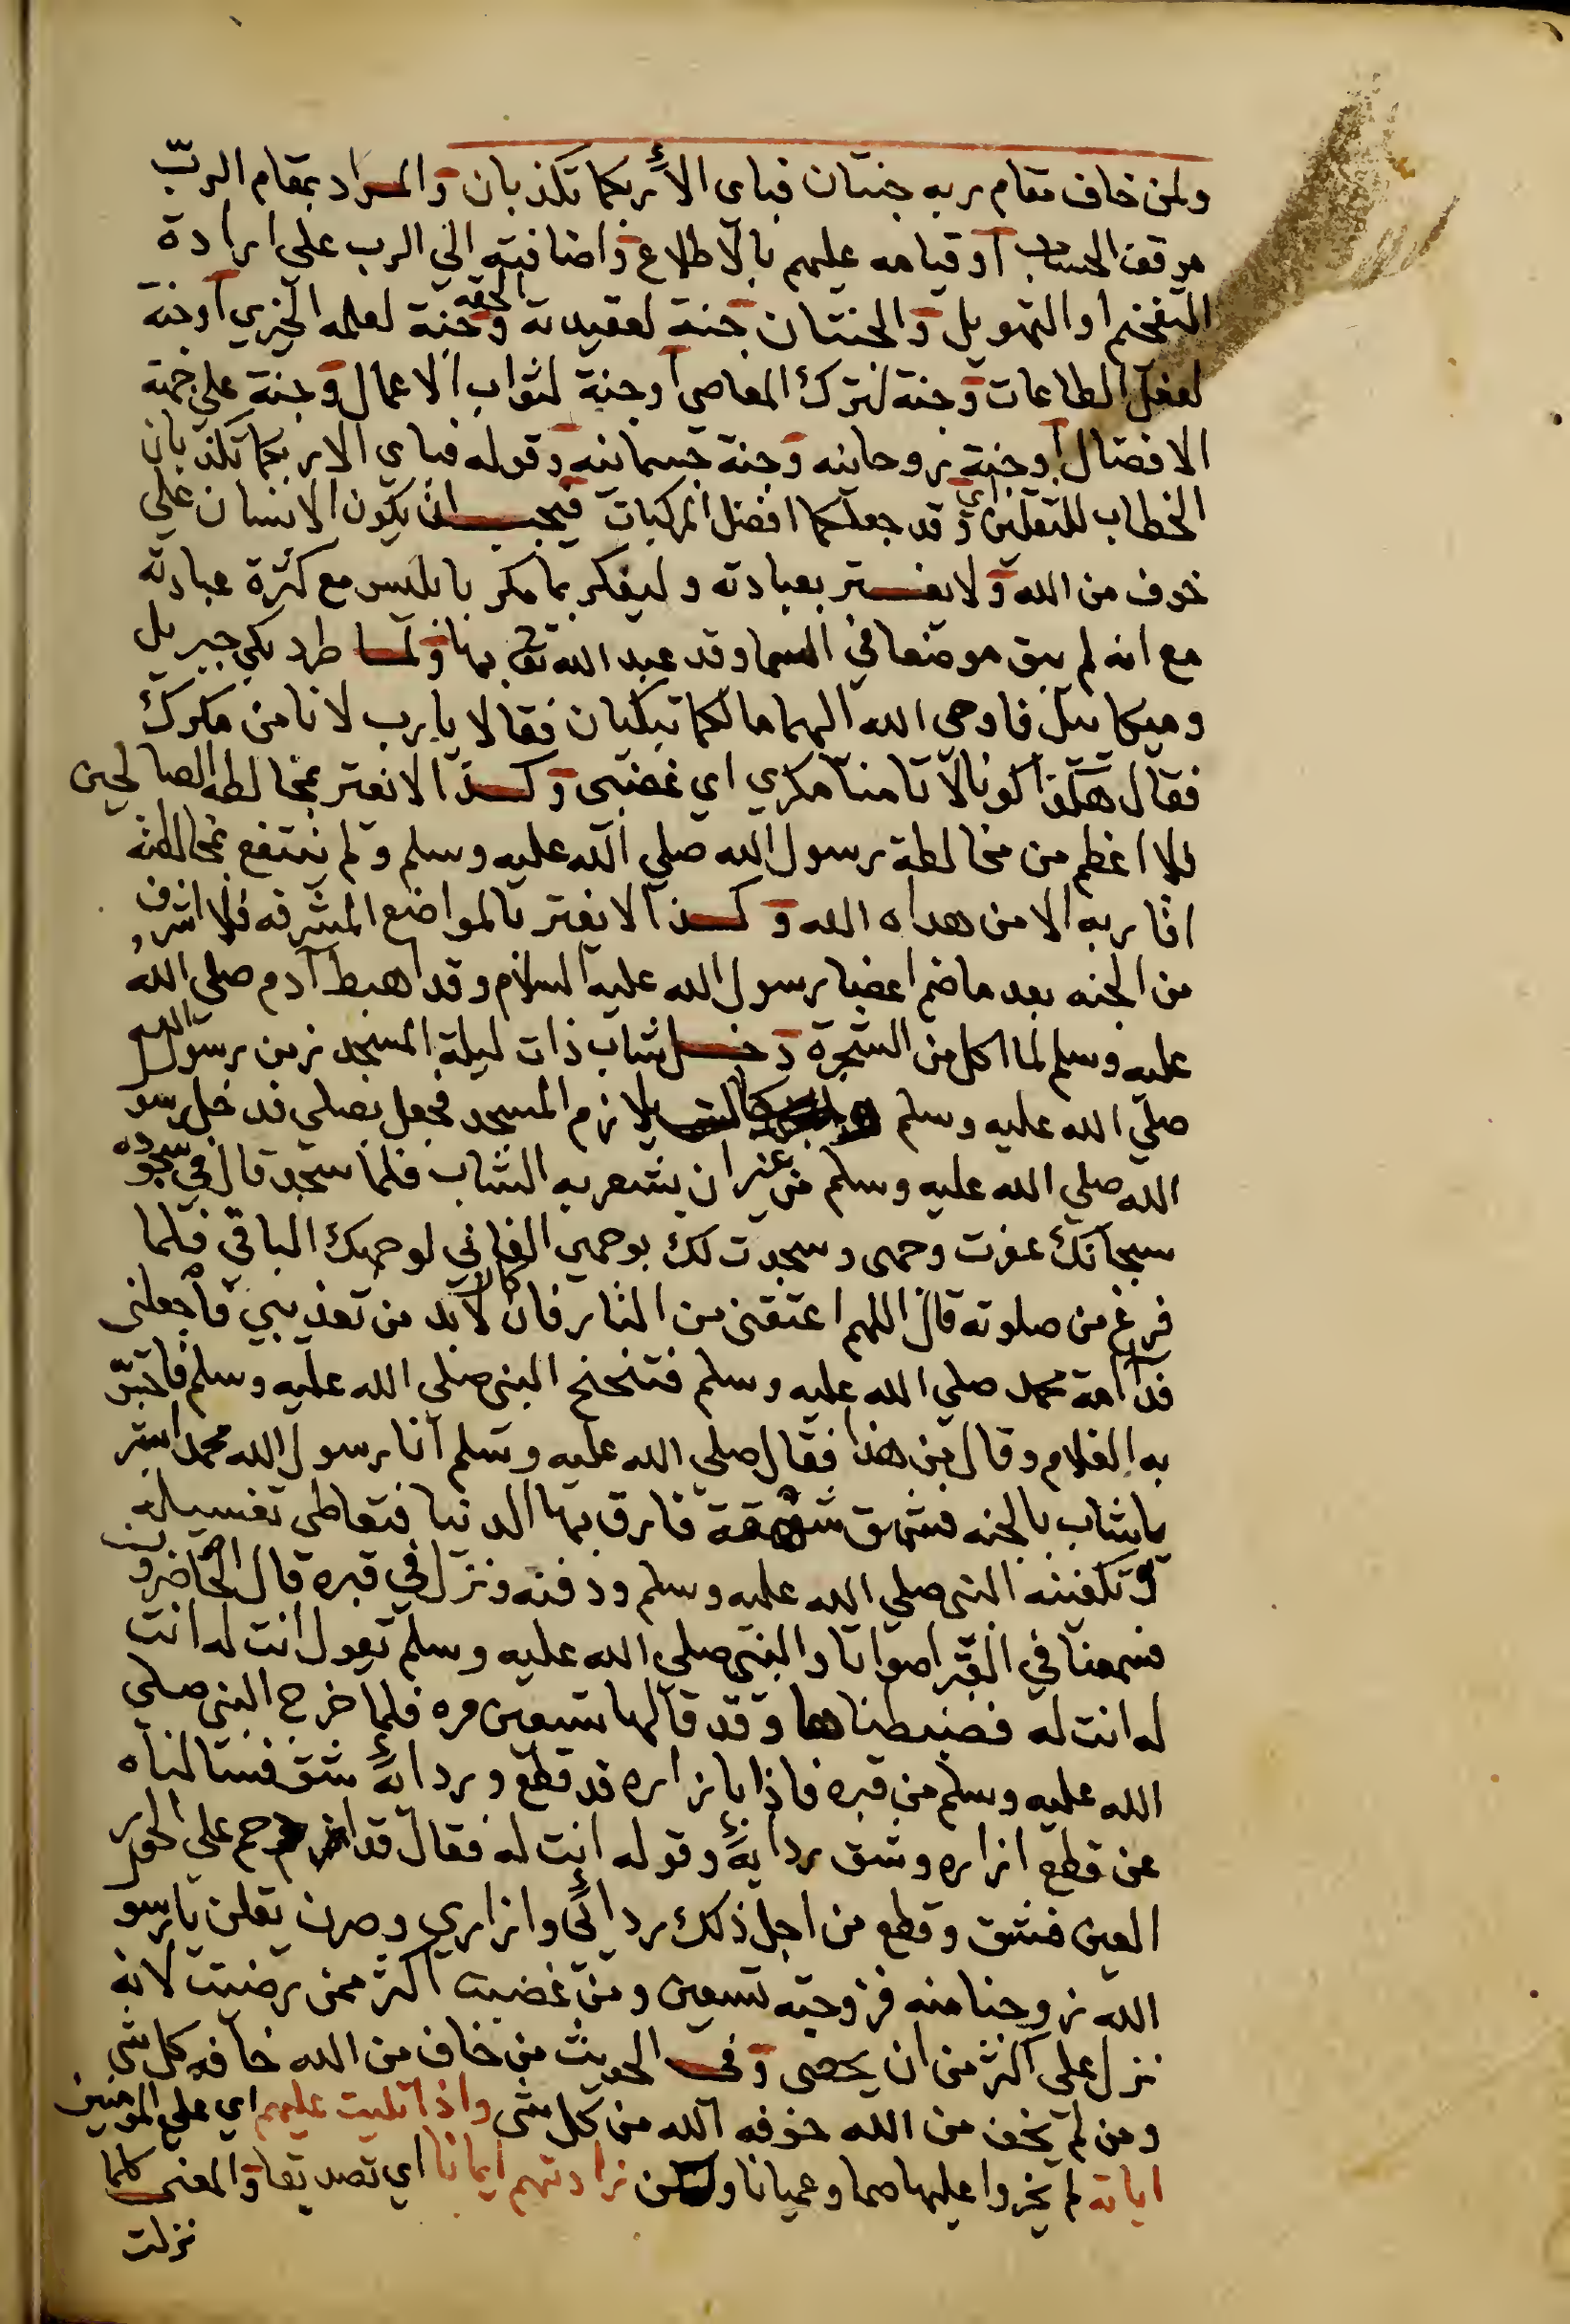 ولمن خاف مقام ربه جنتان فباى الأء ربكما تكذبان والمراد بمقام الربّ
موقف الحساب او قيامه عليهم بالاطلاع واضافته الي الرب علي ارادة
التفخيم او التهويل والجنتان جنة لعقيدته الحقه وجنة لعلمه الخيري او جنة
لفعل الطاعات وجنة لترك المعاصي او جنة لثواب الاعمال وجنة علي جهة
الافضال او جنة روحانيه وجنة جسمانيه وقوله فباي الاء ربكما تكذبان
الخطاب للثقلين اي وقد جعلكما افضل المركبات فيجب ان يكون الانسان علي
خوف من الله ولا يغتر بعبادته وليفكر بما مكر بابليس مع كثرة عبادته
مع انه لم يبق موضعا في السما وقد عبد الله تعا بها ولما طرد بكي جبريل
وميكائيل فاوحى الله اليهما مالكما تبكيان فقالا يا رب لا نامن مكرك
فقال هكذا كونا لا تامنا مكري اي غضبي وكذا لا تغتر بمخالطه الصالحين
فلا اعظم من مخالطة رسول الله صلي الله عليه وسلم ولم ينتفع بمخالطته
اقاربه الا من هداه الله وكذا لا يغتر بالمواضع المشرفه فلا اشرف
من الجنه بعد ما ضم اعضا رسول الله عليه السلام وقد اهبط آدم صلي الله
عليه وسلم لما اكل من الشجرة ودخل شاب ذات ليلة المسجد زمن رسول الله
صلي الله عليه وسلم يلازم المسجد فجعل يصلي فدخل رسو
الله صلي الله عليه وسلم من غير ان يشعر به الشاب فلما سجد قال في سجوده
سبحانك عفرت وجهى وسجدت لك بوجهي الفاني لوجهك الباقي فلما
فرغ من صلوته قال اللهم اعتقنى من النار فان كان لا بد من تعذيبي فاجعلنى
فدا امة محمد صلي الله عليه وسلم فتنحنح النبى صلي الله عليه وسلم فاختبر
به الغلام وقال من هذا فقال صلي الله عليه وسلم انا رسول الله محمد ابشر
يا شاب بالجنه فشهق شهقة فارق بها الدنيا فتعاطى تغسيله
وتكفينه النبى صلي الله عليه وسلم ودفنه ونزل في قبره قال الحاضرون
فسمعنا في القبر اصواتا والنبى صلي الله عليه وسلم يقول انت له انت
له انت له فضبطناها وقد قالها سبعين مره فلما خرج النبى صلي
الله عليه وسلم من قبره فاذا بازاره قد قطع وردائه شق فسالناه
عن قطع ازاره وشق ردايه وقوله انت له فقال قد ازدحم علي الحور
العين فشق وقطع من اجل ذلك ردائى وازاري وصرن يقلن يا رسو
الله زوجنا منه فزوجته تسعين ومن غضبت اكثر ممن رضيت لانه
نزل على اكثر من ان يحصى وفى الحديث من خاف من الله خافه كل شى
ومن لم يخف من الله خوفه الله من كل شى واذا تليت عليهم اي علي المومنين
اياته لم يخروا عليها صما وعميانا ولكن زادتهم ايمانا اي تصديقا والمعنى كلما
نزلت